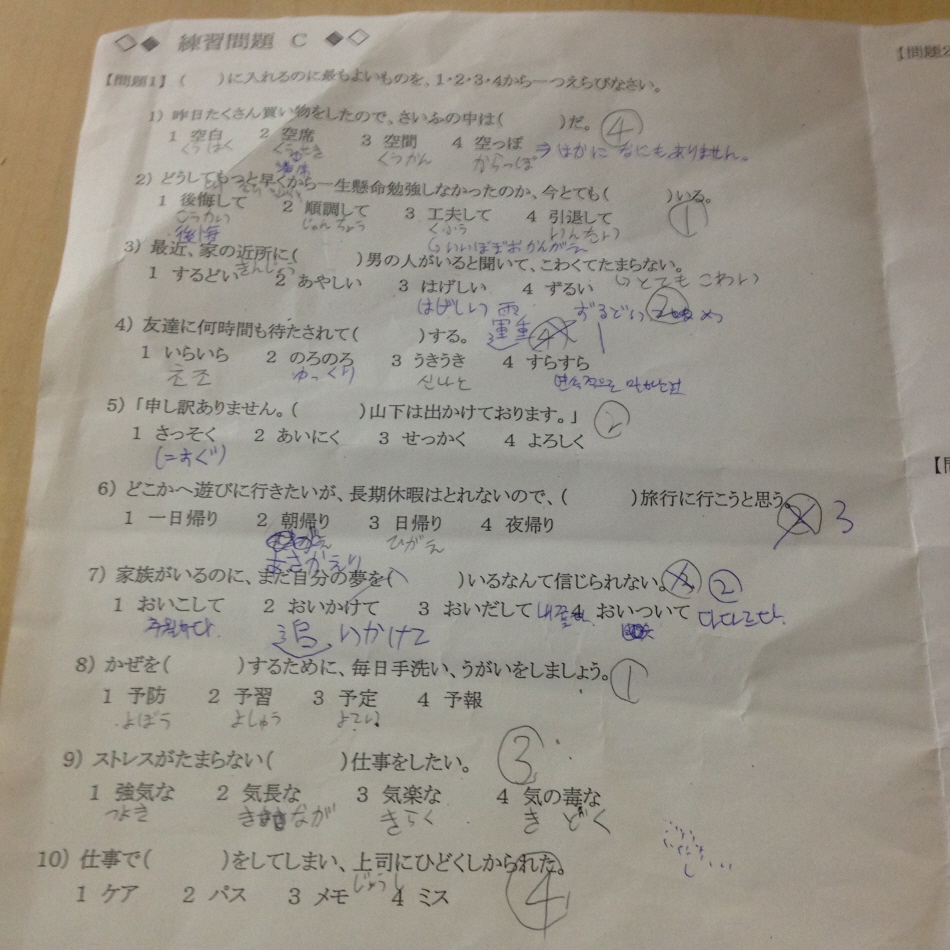 ◇◆ 練習問題 C ◆◇
【問題1】 ( )に入れるのに最もよいものを、1・2・3・4から一つえらびなさい。
1) 昨日たくさん買い物をしたので、さいふの中は( )だ。 ④
1 空白 2 空席 3 空間 4 空っぽ ⇒ はかに なにもありません。
くうはく くうせき くうかん からっぽ
2) どうしてもっと早くから一生懸命勉強しなかったのか、今とても( )いる。
1 後悔して 2 順調して 3 工夫して 4 引退して ①
こうかい じゅんちょう くふう いんたい
後悔
3) 最近、家の近所に( )男の人がいると聞いて、こわくてたまらない。
きんじょ とてもこわい
1 するどい 2 あやしい 3 はげしい 4 ずるい
はげしい 雨
4) 友達に何時間も待たされて( )する。 4 1
1 いらいら 2 のろのろ 3 うきうき 4 すらすら
초조 ゆっくり 신나는
5) 「申し訳ありません。( )山下は出かけております。」 ②
1 さっそく 2 あいにく 3 せっかく 4 よろしく
(=すぐ)
6) どこかへ遊びに行きたいが、長期休暇はとれないので、( )旅行に行こうと思う。 3
1 一日帰り 2 朝帰り 3 日帰り 4 夜帰り
あさかえり ひがえ
7) 家族がいるのに、まだ自分の夢を( )いるなんて信じられない。 ②
1 おいこして 2 おいかけて 3 おいだして 4 おいついて 다다르다.
追いかけて
8) かぜを( )するために、毎日手洗い、うがいをしましょう。 ①
1 予防 2 予習 3 予定 4 予報
よぼう よしゅう よてい
9) ストレスがたまらない( )仕事をしたい。 ③
1 強気な 2 気長な 3 気楽な 4 気の毒な
つよき きなが きらく きどく
10) 仕事で( )をしてしまい、上司にひどくしかられた。
じょうし
1 ケア 2 パス 3 メモ 4 ミス ④
【問題2
【問